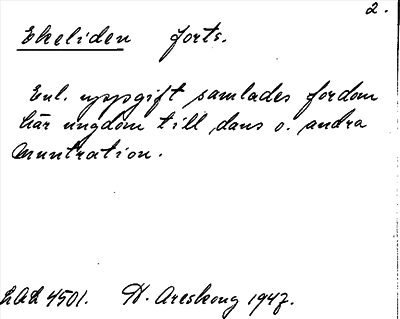 2.
Ekeliden forts.
Enl. uppgift samlades fordom
här ungdom till dans o. andra
muntration.
LAL 4501. H. Areskoug 1947.